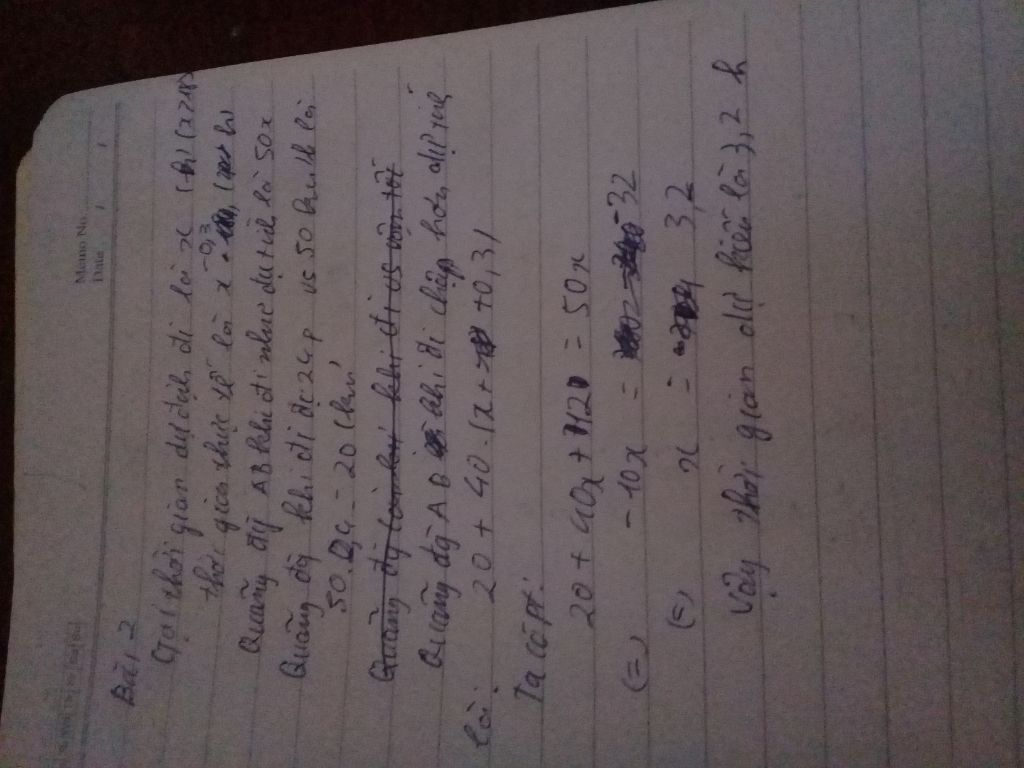 Memo No.
Date
Bài 2
Gọi thời gian dự định đi là x (h) (x>
thời gian thực tế là x - 0,3
Quãng đg AB khi đi như dự tính là 50x
Quãng đg khi đi đc 24p vs 50 km/h là
50.0,4 = 20 (km)
Quãng đg còn lại khi đi vs vận tốc
Quãng đg AB khi đi chập hơn dự tính
là: 20 + 40.(x + 0,3)
Ta có pt:
20 + 40x + 120 = 50x
(=) -10x = -32
(=) x = 3,2
Vậy thời gian dự kiến là 3,2 h